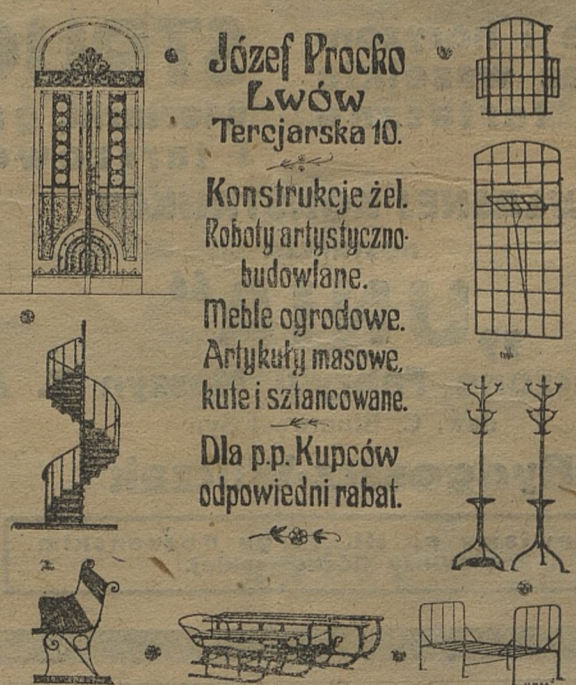 Józef Procko
Lwów
Tercjarska 10.
Konstrukcje żel.
Roboty artystyczno-
budowlane.
Meble ogrodowe.
Artykuły masowe,
kute i sztancowane.
Dla p.p. Kupców
odpowiedni rabat.